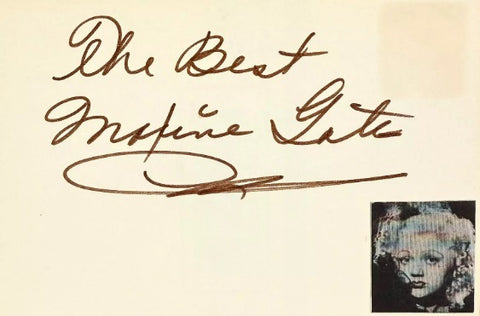 The Best
Maxine Gates